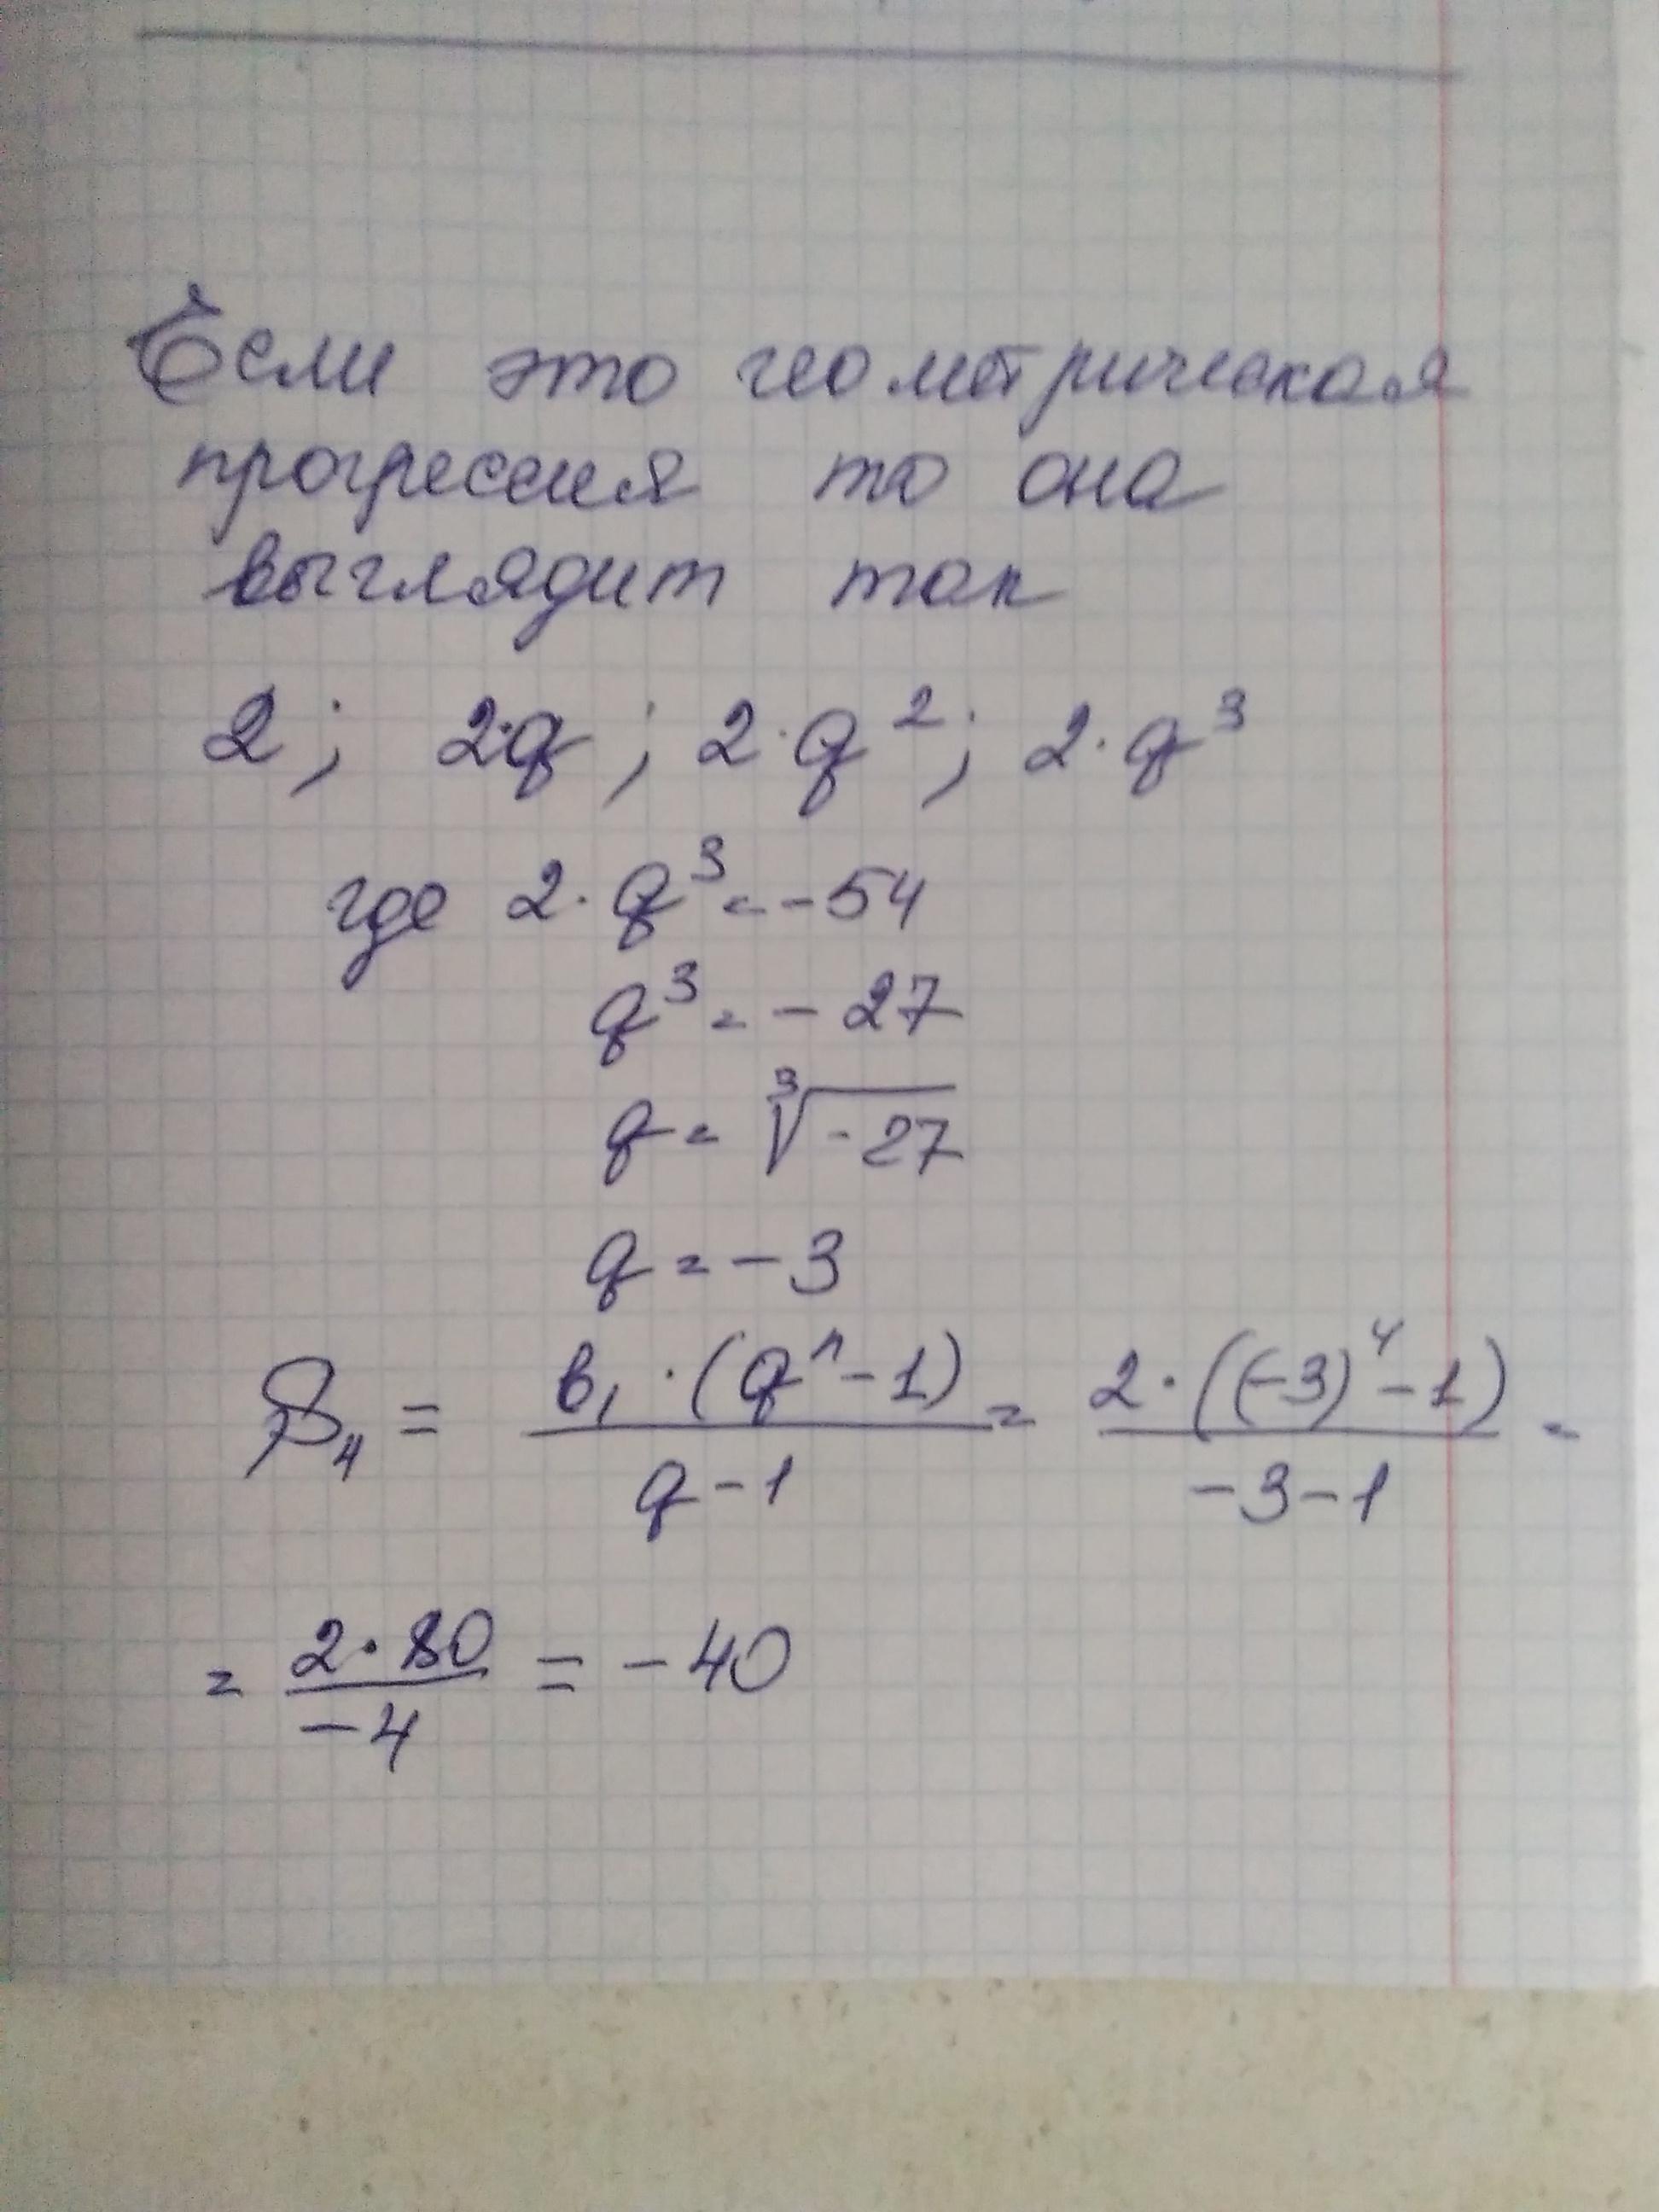 Если это геометрическая
прогрессия то она
выглядит так
2; 2·q; 2·q²; 2·q³
где 2·q³=-54
q³=-27
q=∛-27
q=-3
S₄ = b₁·(qⁿ-1)/q-1 = 2·((-3)⁴-1)/-3-1 =
= 2·80/-4 = -40